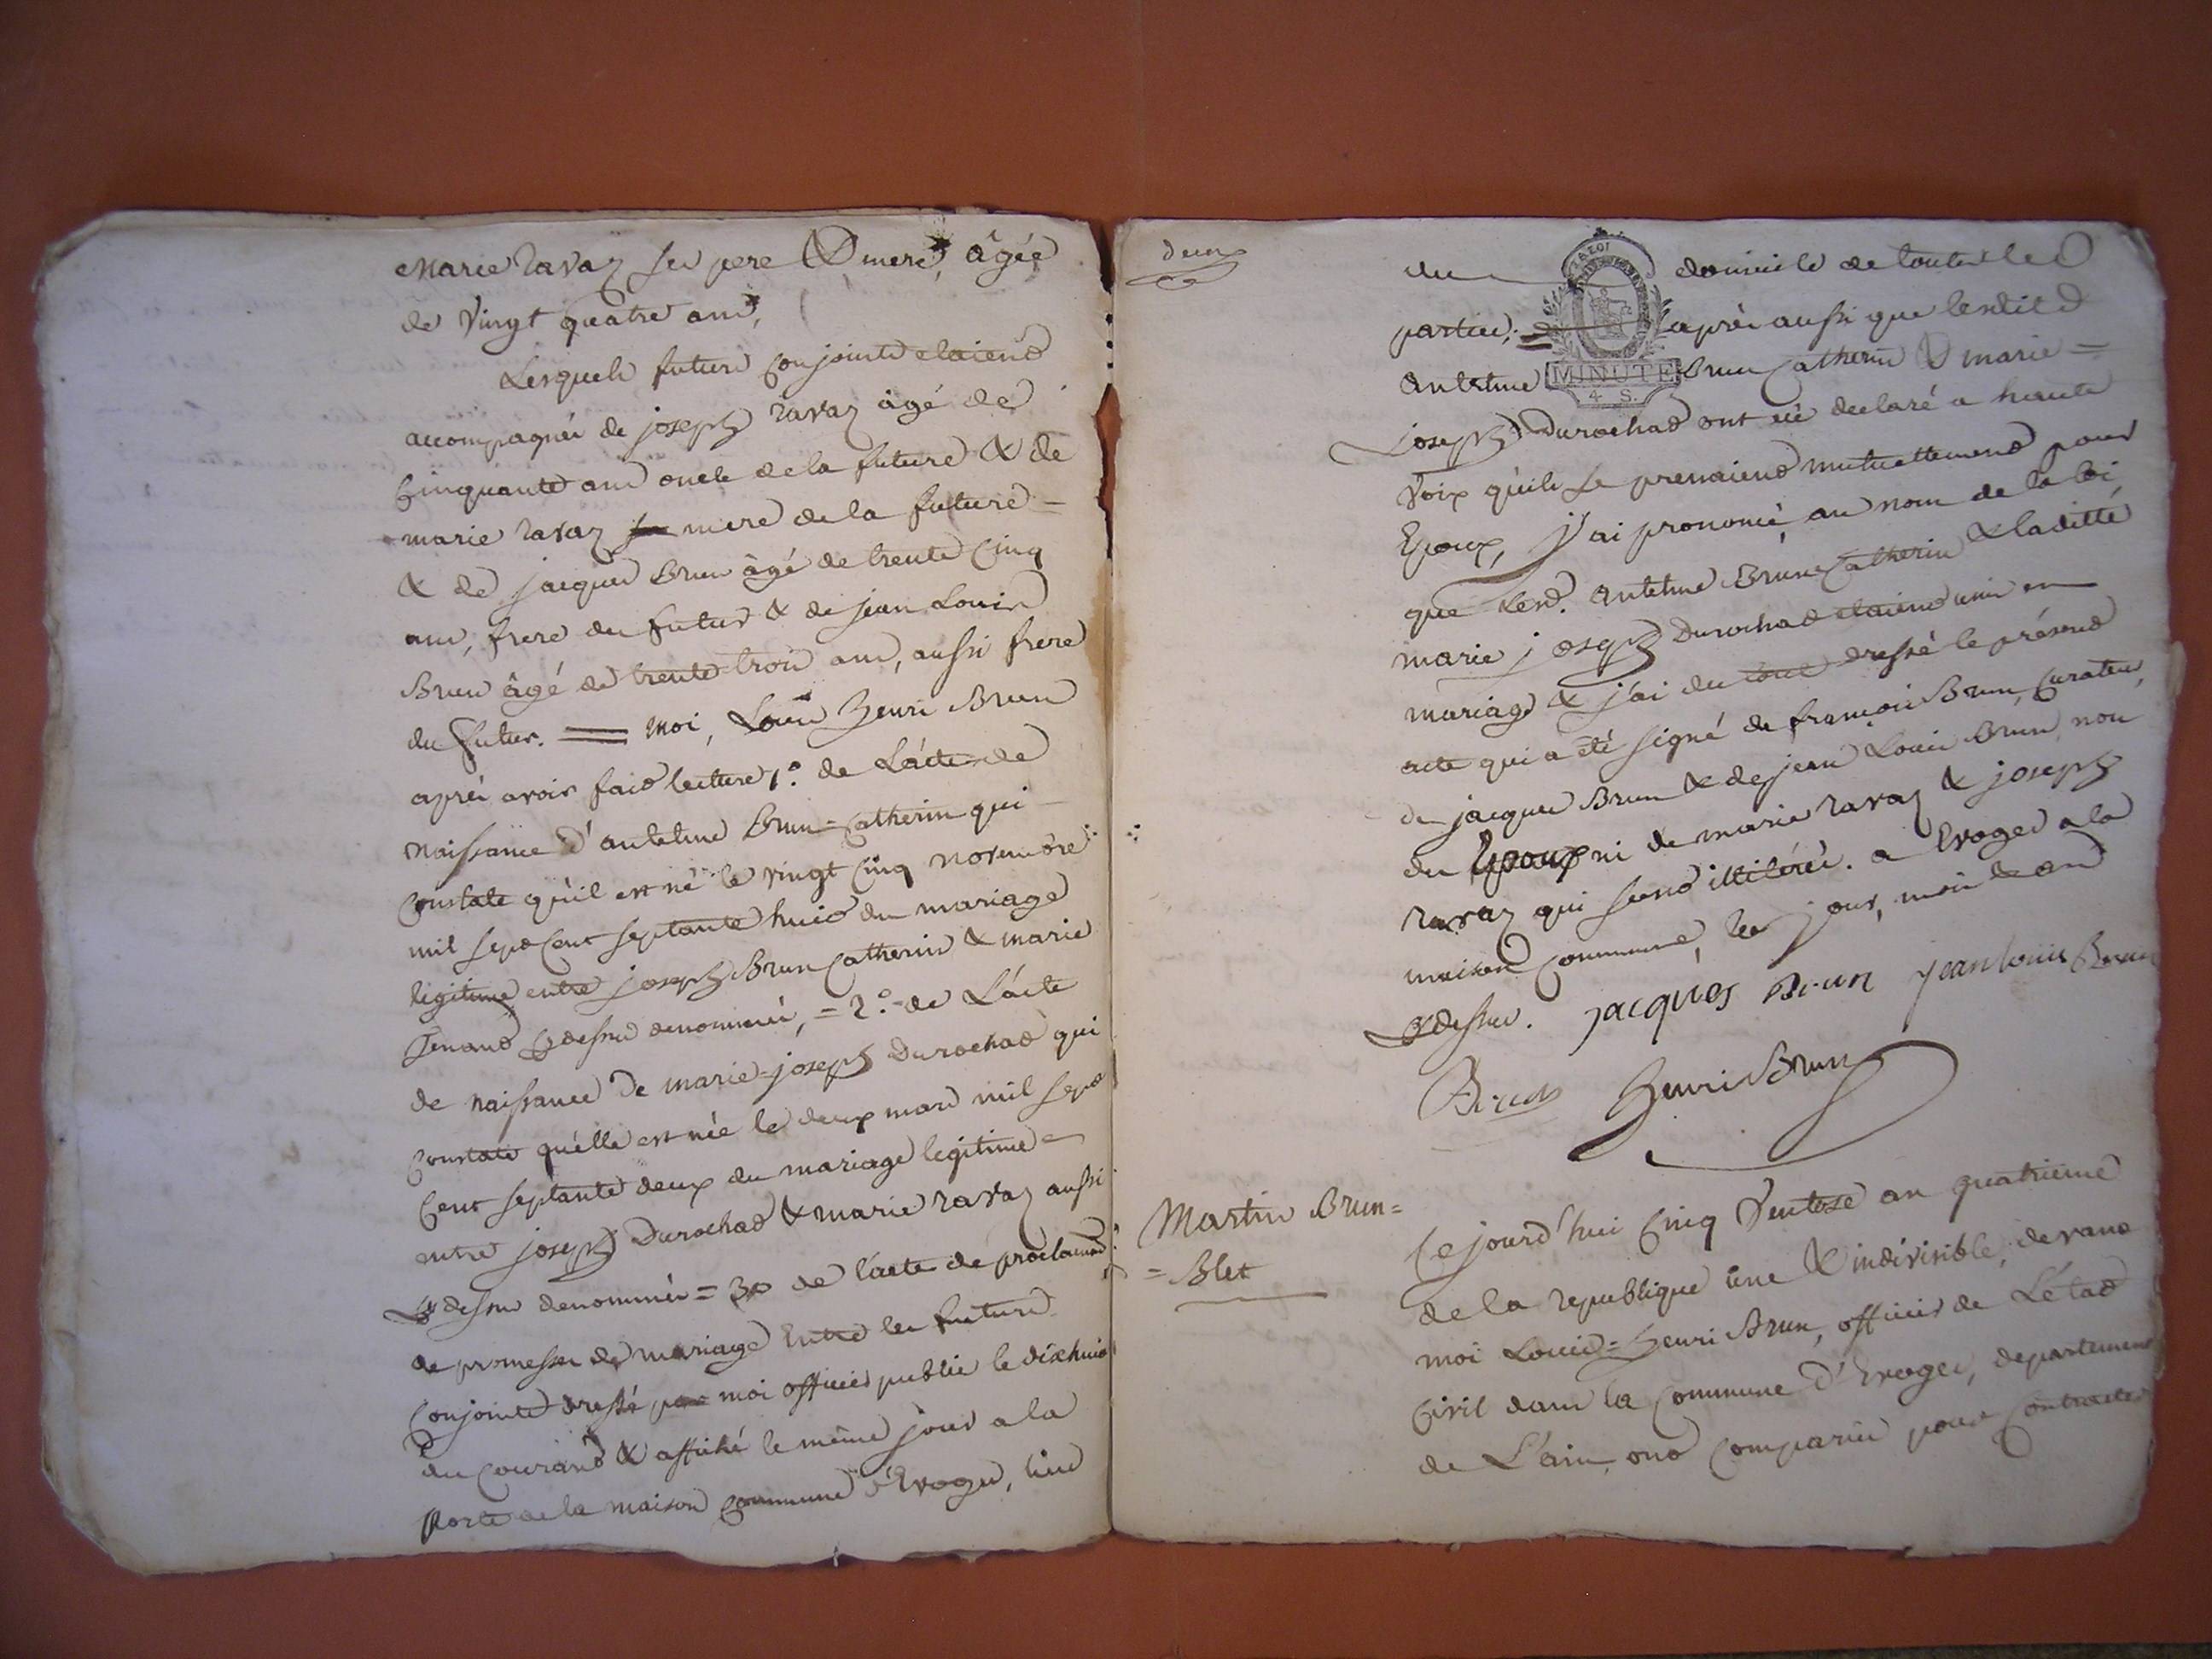 Marie Ravaz ses pere & mere, âgée
de vingt quatre ans,
Lesquels futurs conjoints etaient
accompagnés de joseph ravaz âgé de
Cinquante ans oncle de la future & de
marie ravaz mere de la future =
& de jacques Brun âgé de trente Cinq
ans, frere du futur & de jean Louis
Brun âgé de trente trois ans, aussi frere
du futur. = moi, Louis henri Brun
après avoir fait lecture 1.° de L'acte de
naissance d'antelme Brun=Catherin qui
Constate qu'il est né le vingt Cinq novembre
mil sept Cent septante huit du mariage
legitime entre joseph Brun Catherin & marie
Cy dessus denommés, = 2.° de L'acte
de naissance de marie=joseph Durochat qui
Constate qu'elle est née le deux mars mil sept
Cent septante deux du mariage legitime
entre joseph Durochat & marie ravaz aussi
Cy dessus denommés = 3° de l'acte de proclamaon
de promesse de mariage entre les futurs
Conjoints dressé par moi officier public le dixhuit
du Courant & affiché le même jour a la
porte de la maison Commune d'Evoges, lieu
deux
du domicile de toutes les
parties; après aussi que lesdits
MINUTE
4 S.
Antelme Brun Catherin & marie =
joseph Durochat ont eù declaré a haute
voix qu'ils se prenaient mutuellement pour
Epoux, j'ai prononcé au nom de la loi,
que lesd. Antelme Brun Catherin & laditte
marie joseph Durochat etaient unis en
mariage & j'ai du tout dressé le présent
acte qui a été signé de françois Brun, Curateur,
de jacques Brun & de jean Louis Brun, non
des Epoux ni de marie ravaz & joseph
ravaz qui sont illitérés. a Evoges a la
maison Commune, les jour, mois & an
Cy dessus. jacques Brun jean louis Brun
Brun henri Brun
Martin Brun=
=Blet
Cejourd'hui Cinq Ventose an quatrieme
de la republique une & indivisible, devant
moi Louis=henri Brun, officier de L'état
Civil dans la Commune d'Evoges, departement
de L'ain, ont comparus pour Contracter